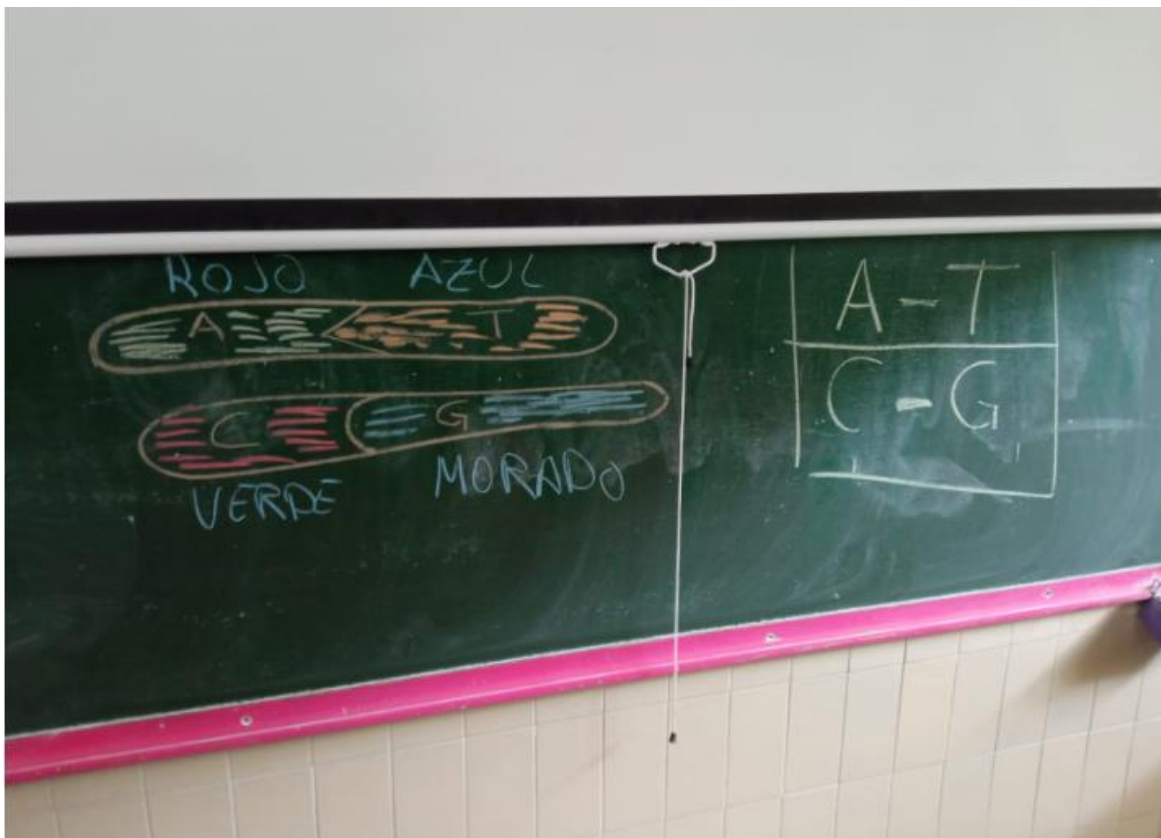 ROJO AZUL
A T
C G
VERDE MORADO
A - T
C - G